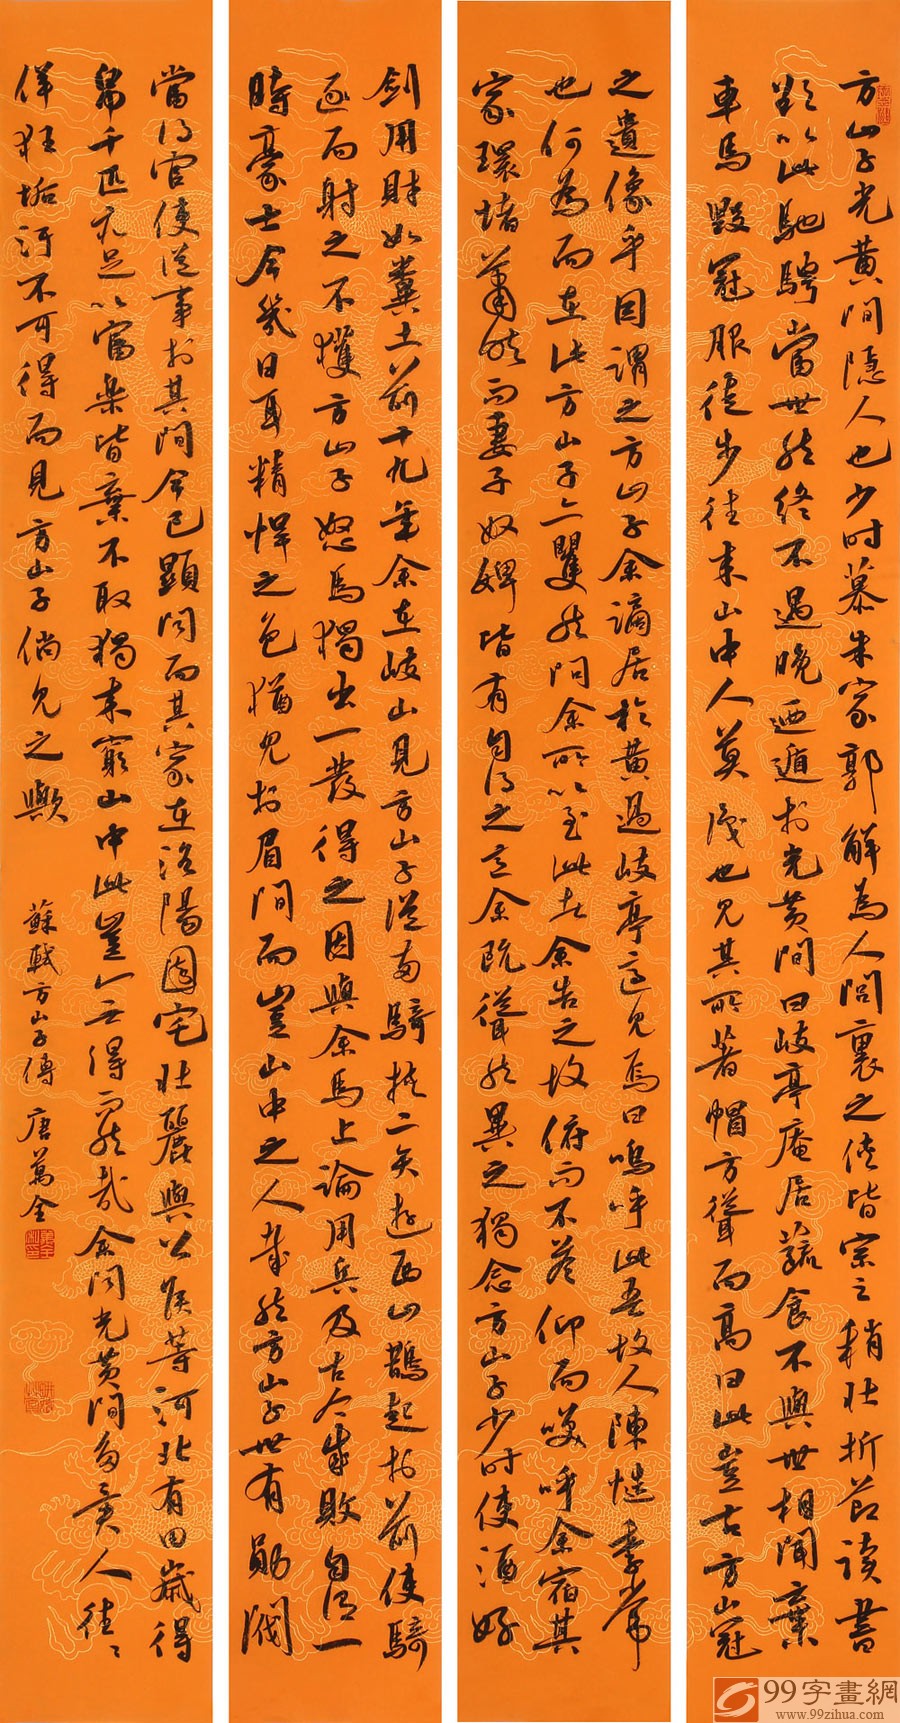 方山子光黄間隱人也少時慕朱家郭解為人閭裏之俠皆宗之稍壯折節讀書
欲以此馳騁當世然終不遇晚迺遁於光黄間曰岐亭庵居蔬食不與世相聞棄
車馬毀冠服徒步往来山中人莫識也見其所著帽方聳而高曰此豈古方山冠
之遺像乎因謂之方山子余謫居於黄過岐亭適見焉曰嗚呼此吾故人陳慥季常
也何為而在此方山子亦矍然問余所以至此者余告之故俯而不答仰而笑呼余宿其
家環堵蕭然而妻子奴婢皆有自得之意余既聳然異之獨念方山子少時使酒好
劍用財如糞土前十九年余在岐山見方山子從兩騎挾二矢遊西山鵲起於前使騎
逐而射之不獲方山子怒馬獨出一發得之因與余馬上論用兵及古今成敗自謂一
時豪士今幾日耳精悍之色猶見於眉間而豈山中之人哉然方山子世有勛閥
當得官使從事於其間今已顯聞而其家在洛陽園宅壯麗與公侯等河北有田歲得
帛千匹亦足以富樂皆棄不取獨来窮山中此豈無得而然哉余聞光黄間多異人往往
佯狂垢污不可得而見方山子倘見之歟
蘇軾方山子傳 唐萬全
99字畫網
www.99zihua.com